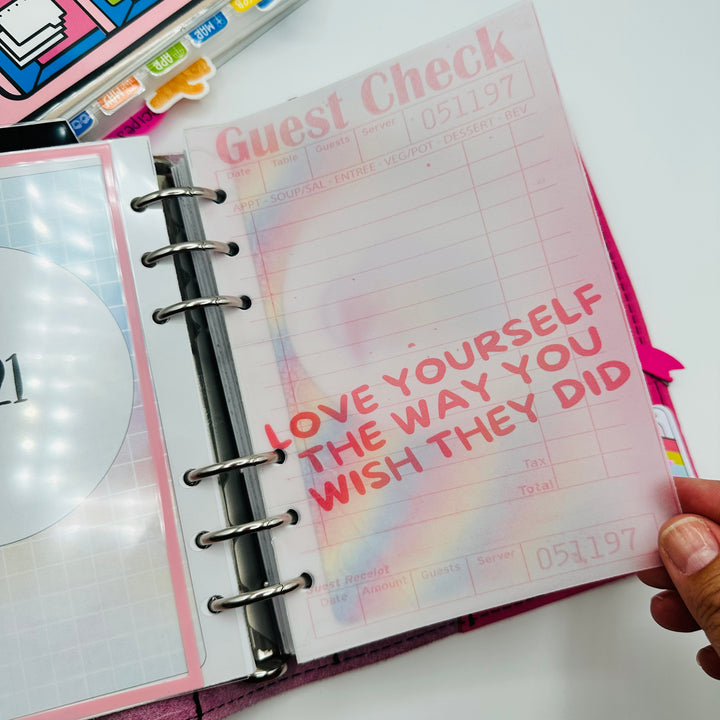 + MAR
APR
21
Guest Check
Date Table Guests Server 051197
APPT - SOUP/SAL - ENTREE - VEG/POT - DESSERT - BEV
LOVE YOURSELF
THE WAY YOU
WISH THEY DID
Tax
Total
Guest Receipt
Date Amount Guests Server 051197